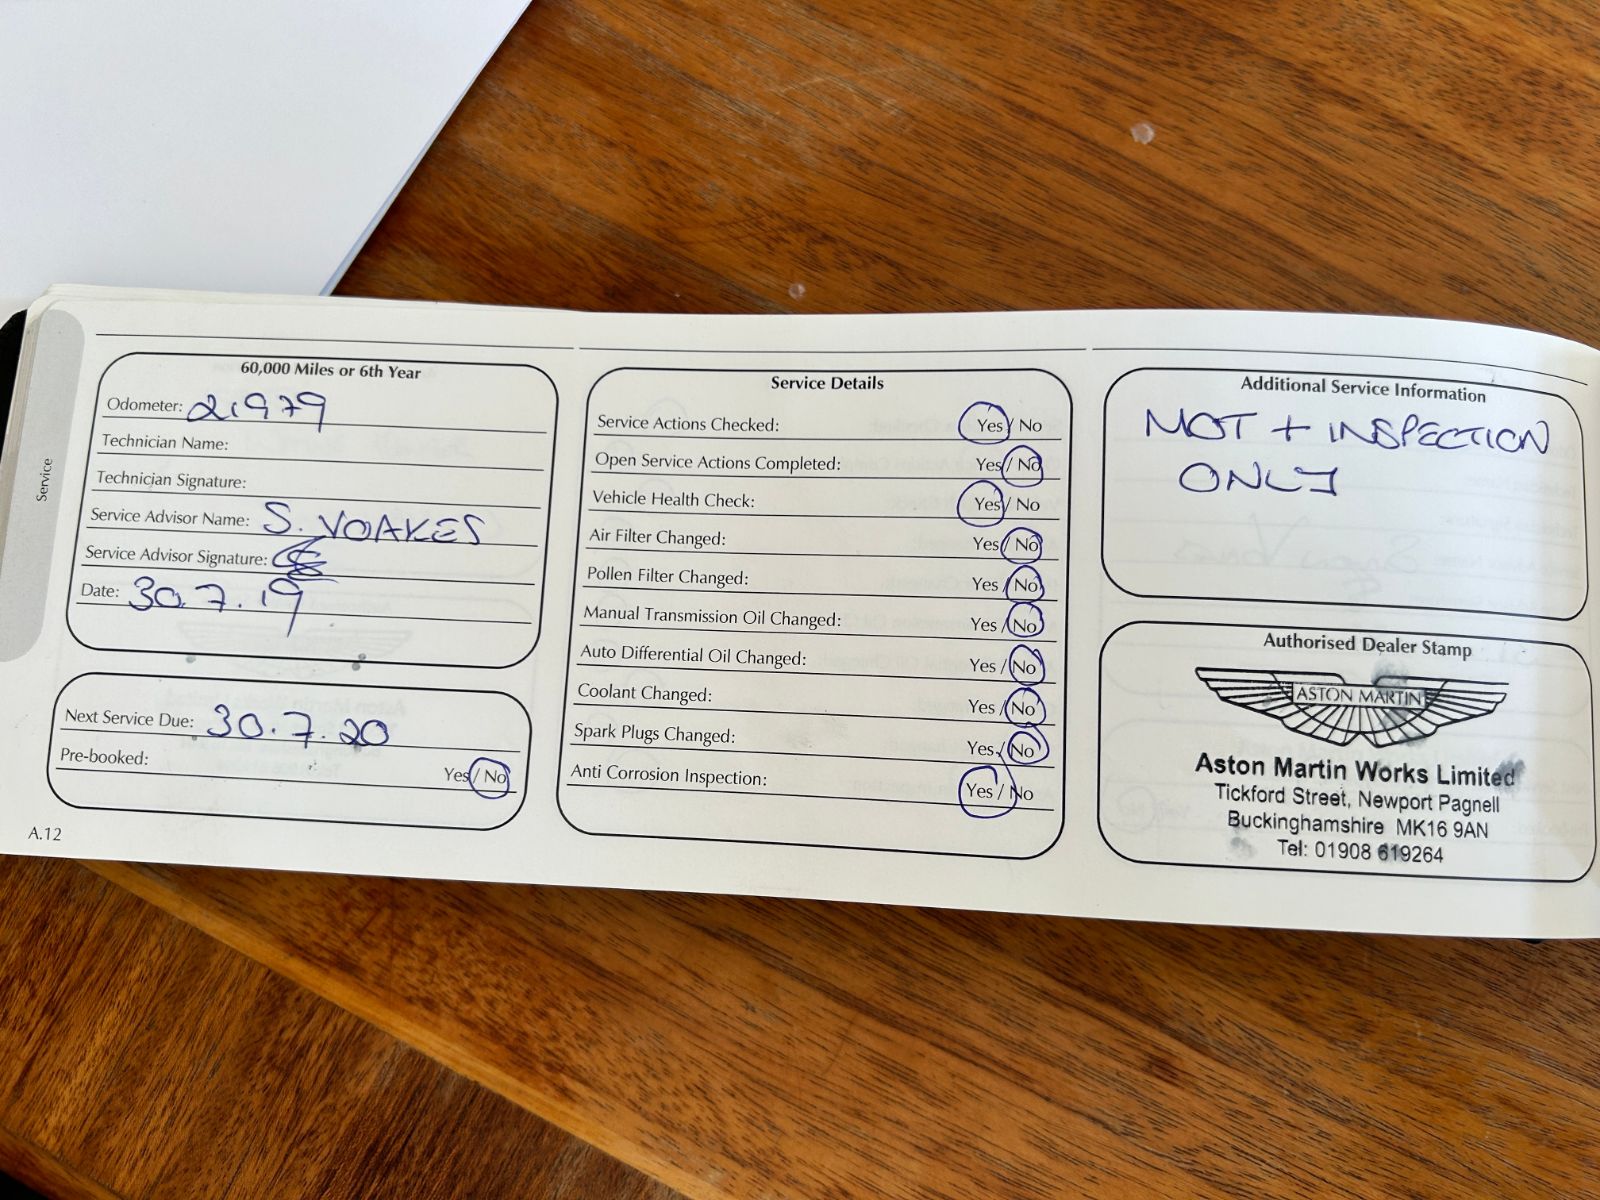 Service
60,000 Miles or 6th Year
Odometer: 21979
Technician Name:
Technician Signature:
Service Advisor Name: S. VOAKES
Service Advisor Signature:
Date: 30.7.19
Next Service Due: 30.7.20
Pre-booked: Yes / No
A.12
Service Details
Service Actions Checked: Yes / No
Open Service Actions Completed: Yes / No
Vehicle Health Check: Yes / No
Air Filter Changed: Yes / No
Pollen Filter Changed: Yes / No
Manual Transmission Oil Changed: Yes / No
Auto Differential Oil Changed: Yes / No
Coolant Changed: Yes / No
Spark Plugs Changed: Yes / No
Anti Corrosion Inspection: Yes / No
Additional Service Information
MOT + INSPECTION
ONLY
Authorised Dealer Stamp
ASTON MARTIN
Aston Martin Works Limited
Tickford Street, Newport Pagnell
Buckinghamshire MK16 9AN
Tel: 01908 619264